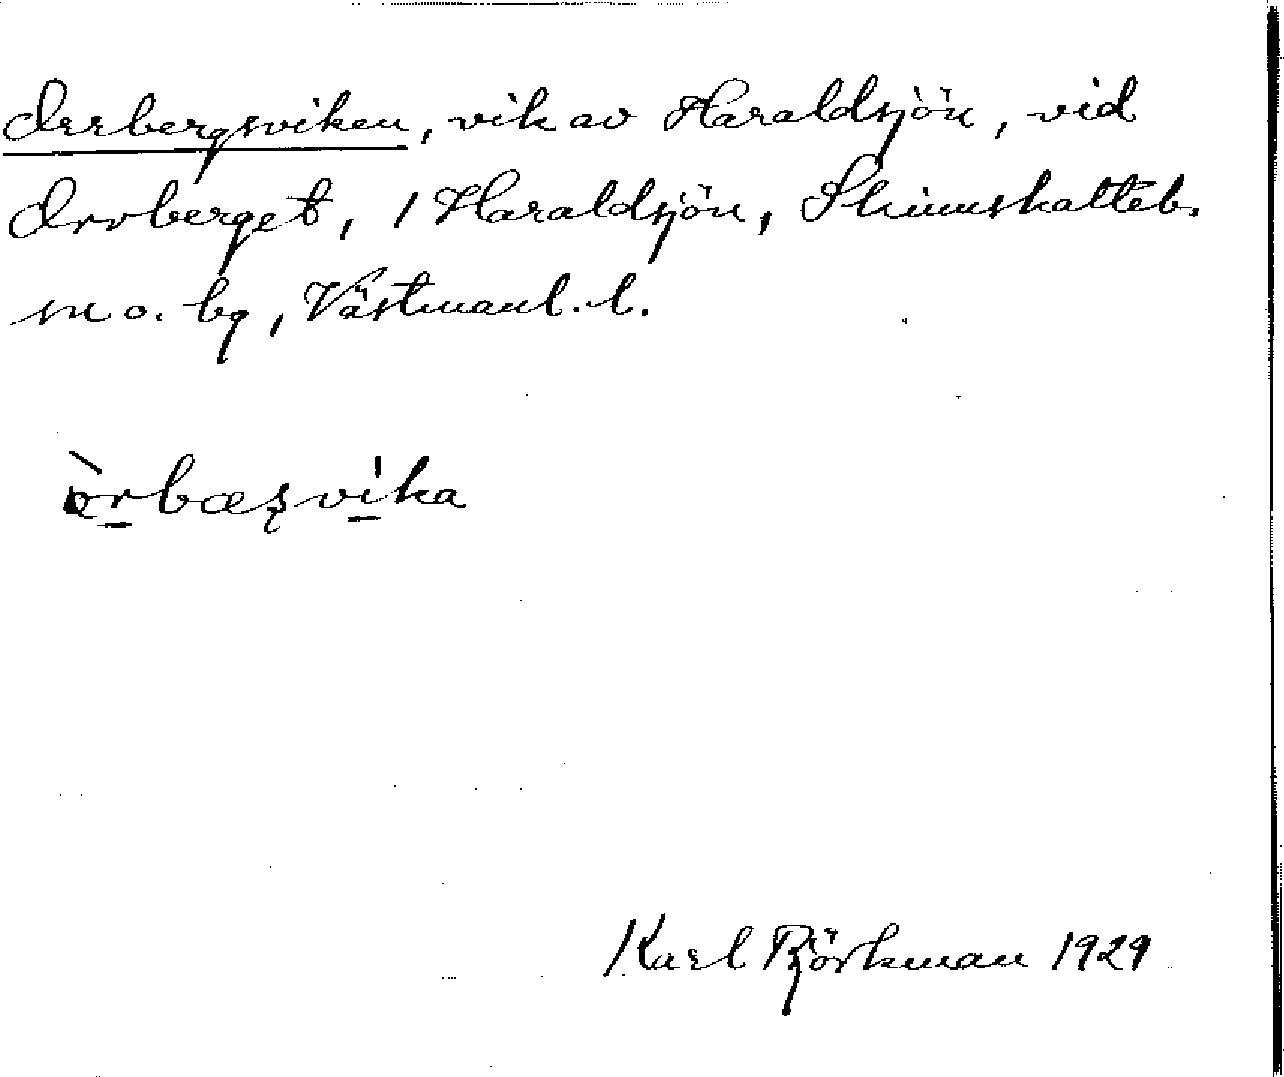 Orrbergsviken, vik av Haraldsjön, vid
Orrberget, 1 Haraldsjön, Skinnskatteb.
sn o. bg, Västmanl. l.
òrbæșvi̱ka
Karl Björkman 1929